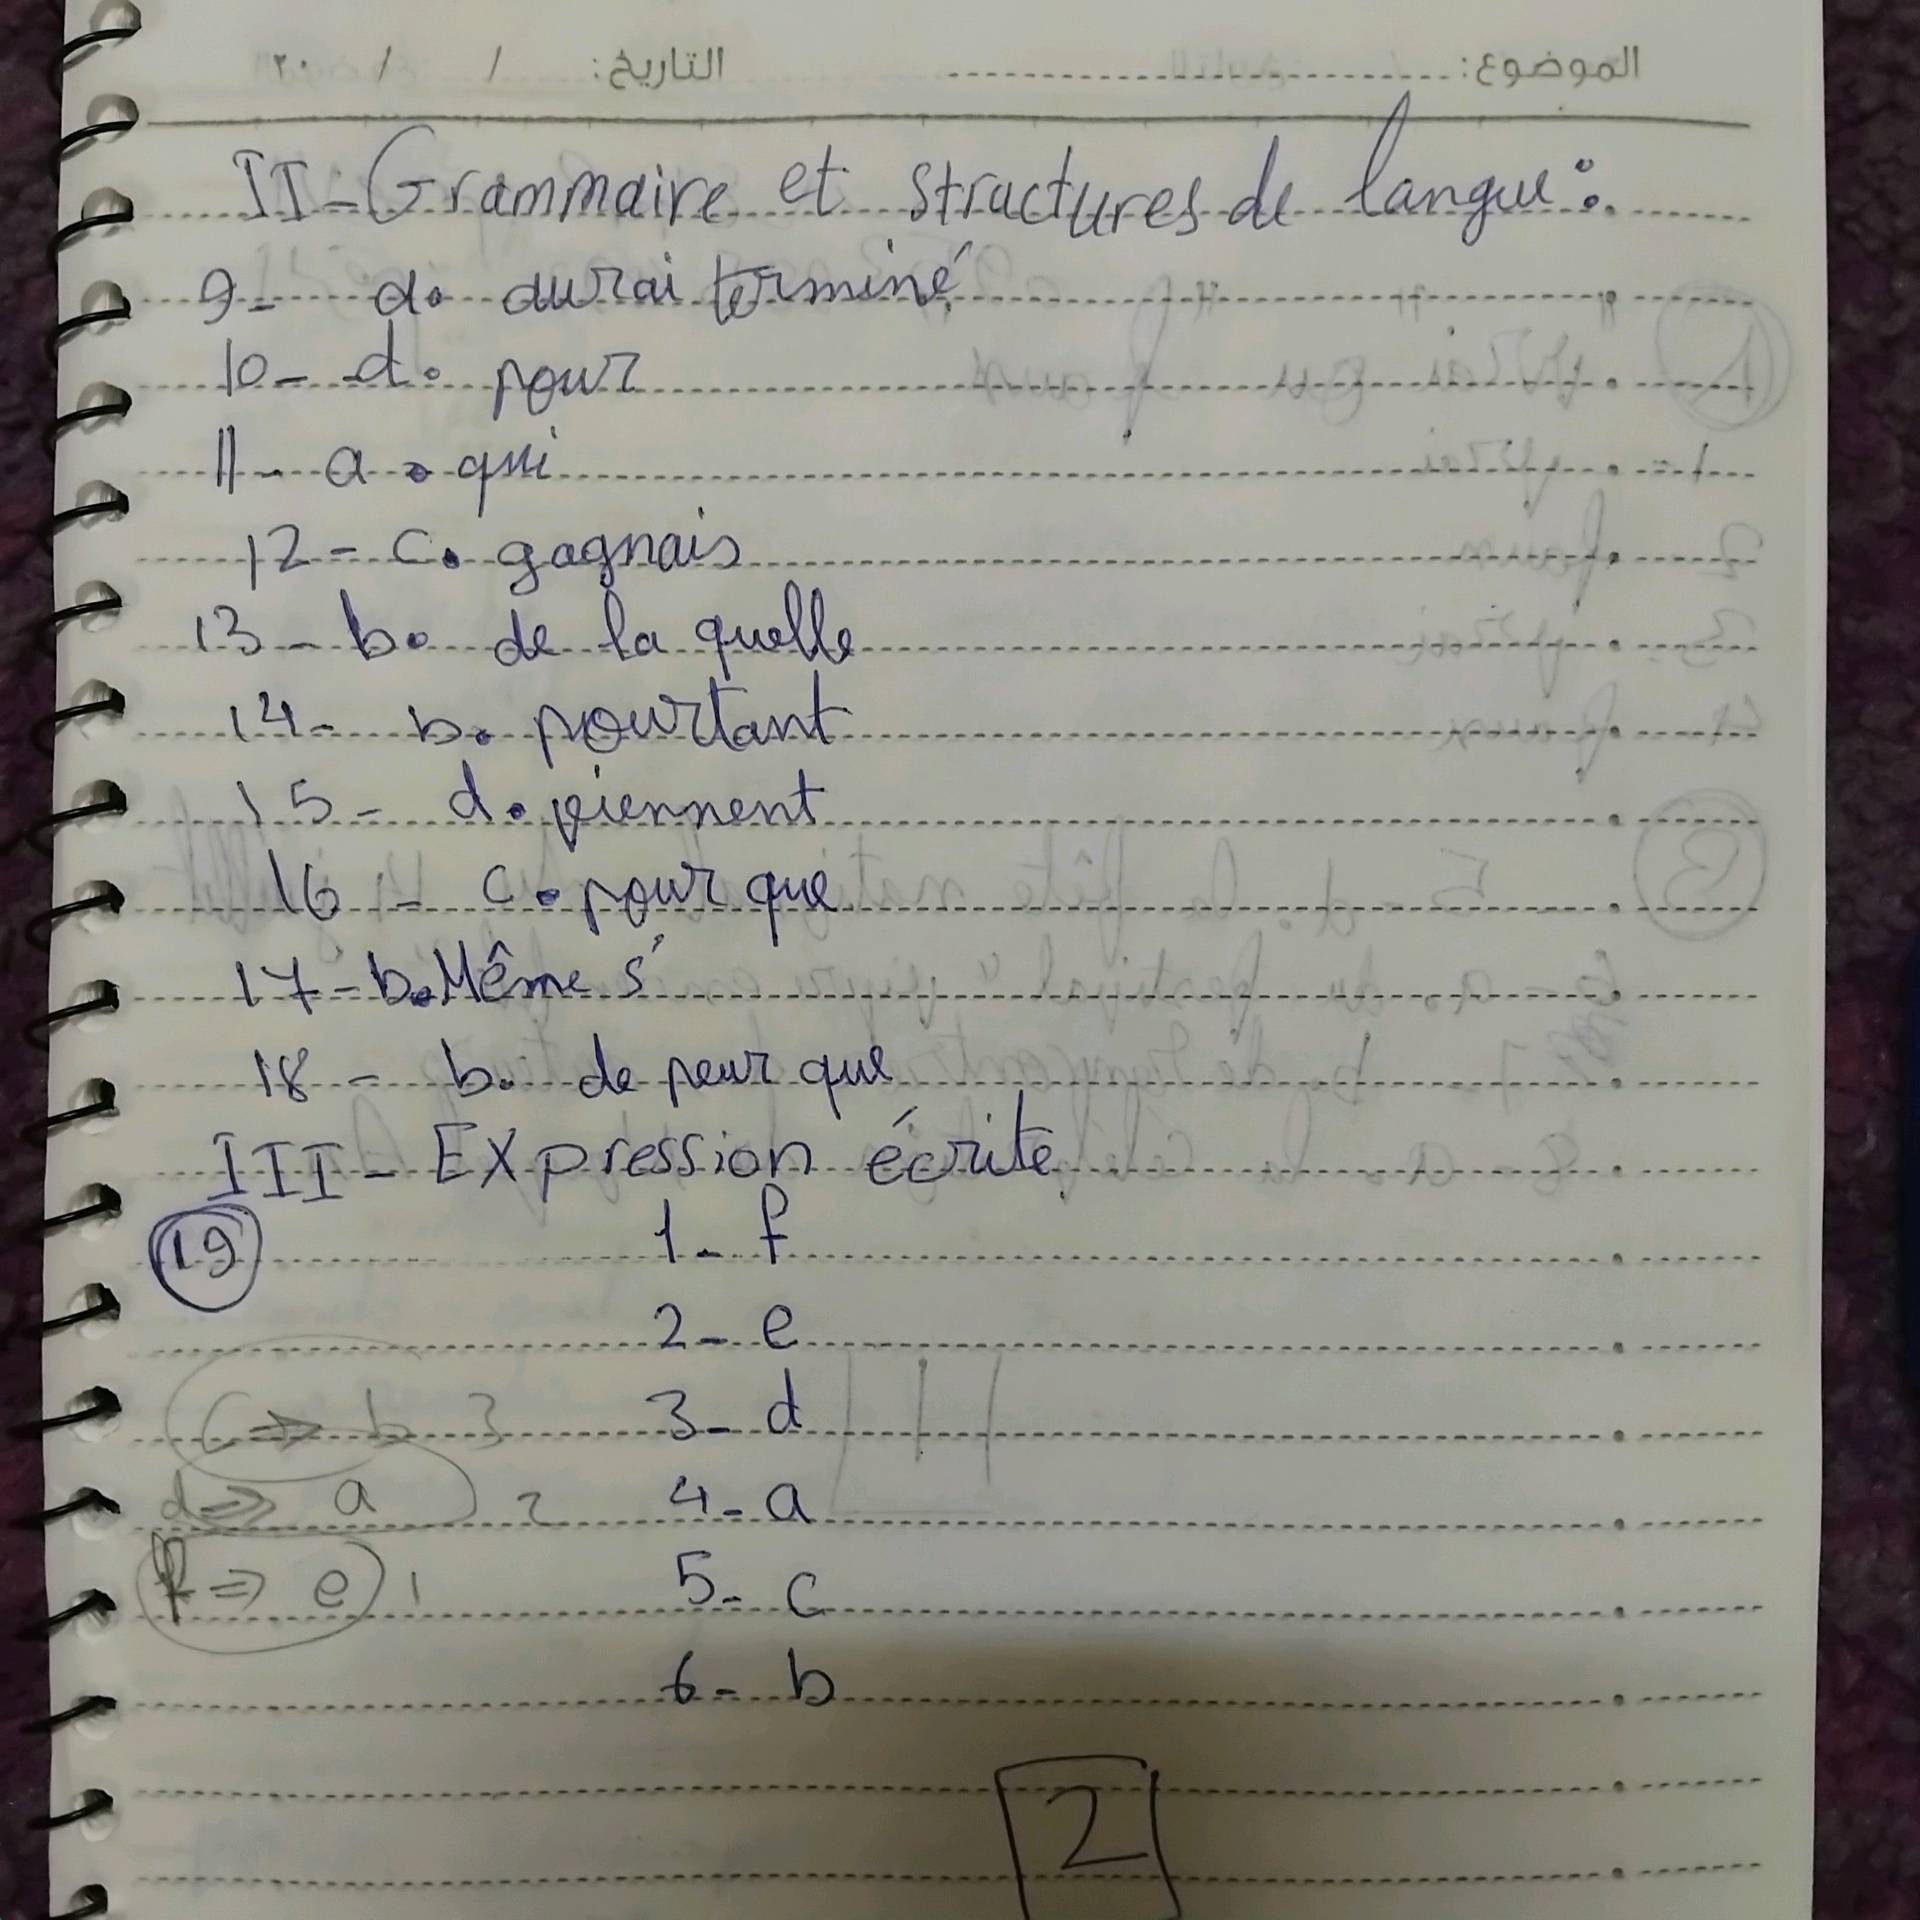 الموضوع: التاريخ: / / ٢٠
II-Grammaire et structures de langue:
9- d. aurai terminé
10- d. pour
11- a. qui
12- c. gagnais
13- b. de la quelle
14- b. pourtant
15- d. viennent
16- c. pour que
17- b. Même s'
18- b. de peur que
III- Expression écrite
19
1- f
2- e
c => b 3
3- d
d => a 2
4- a
f => e 1
5- c
6- b
2